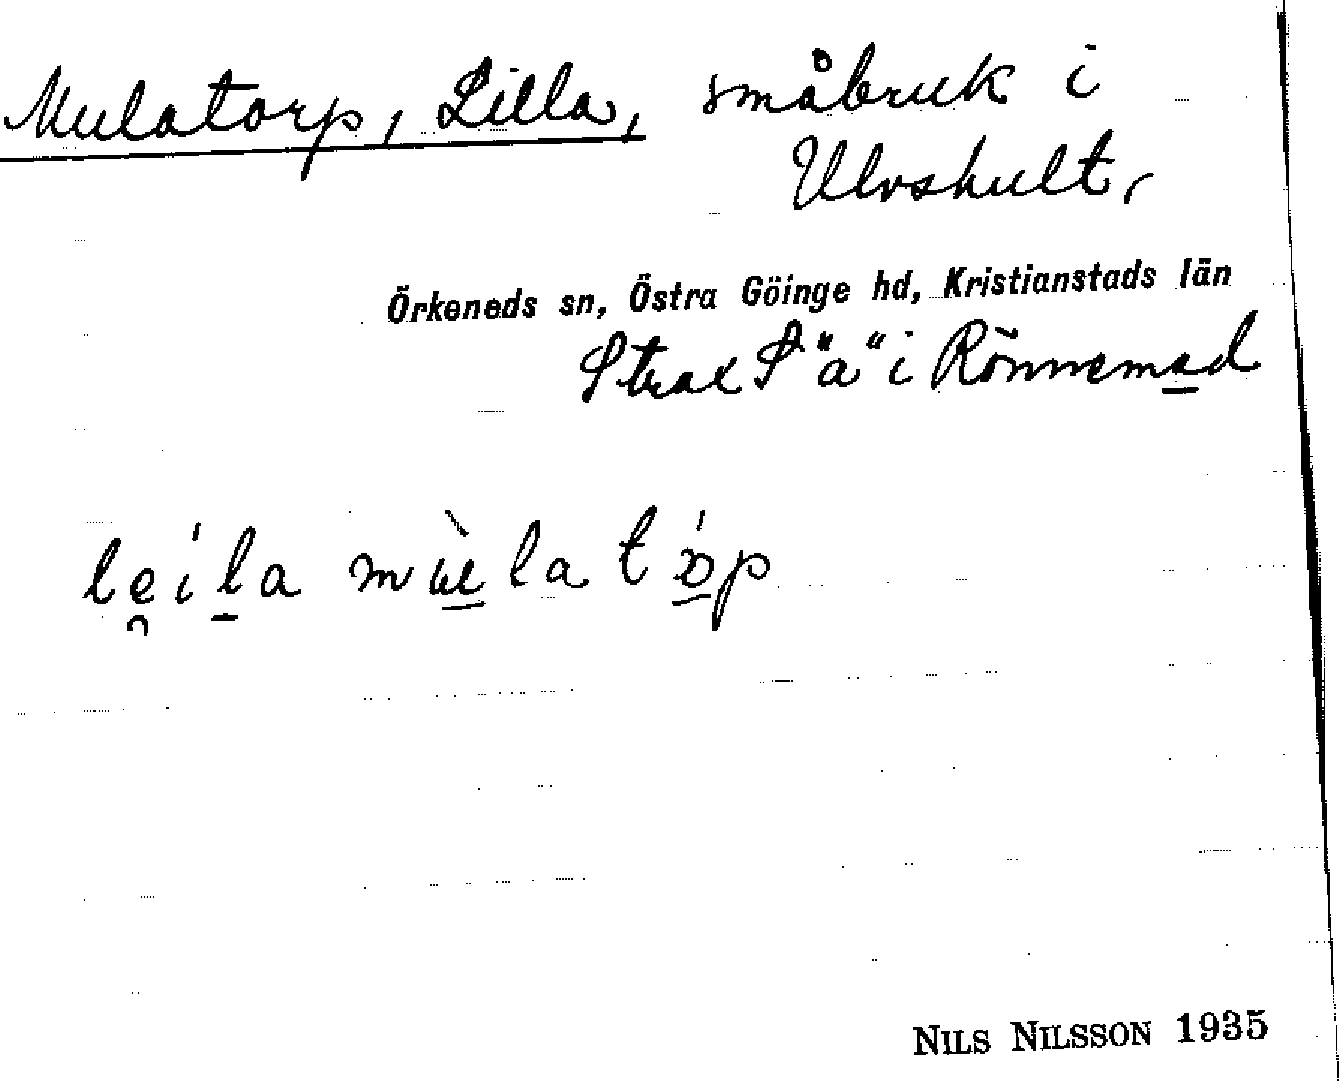 Mulatorp, Lilla, småbruk i
Ulvshult,
Örkeneds sn, Östra Göinge hd, Kristianstads län
Strax S "a" i Rönnemad
leila mula top
NILS NILSSON 1935